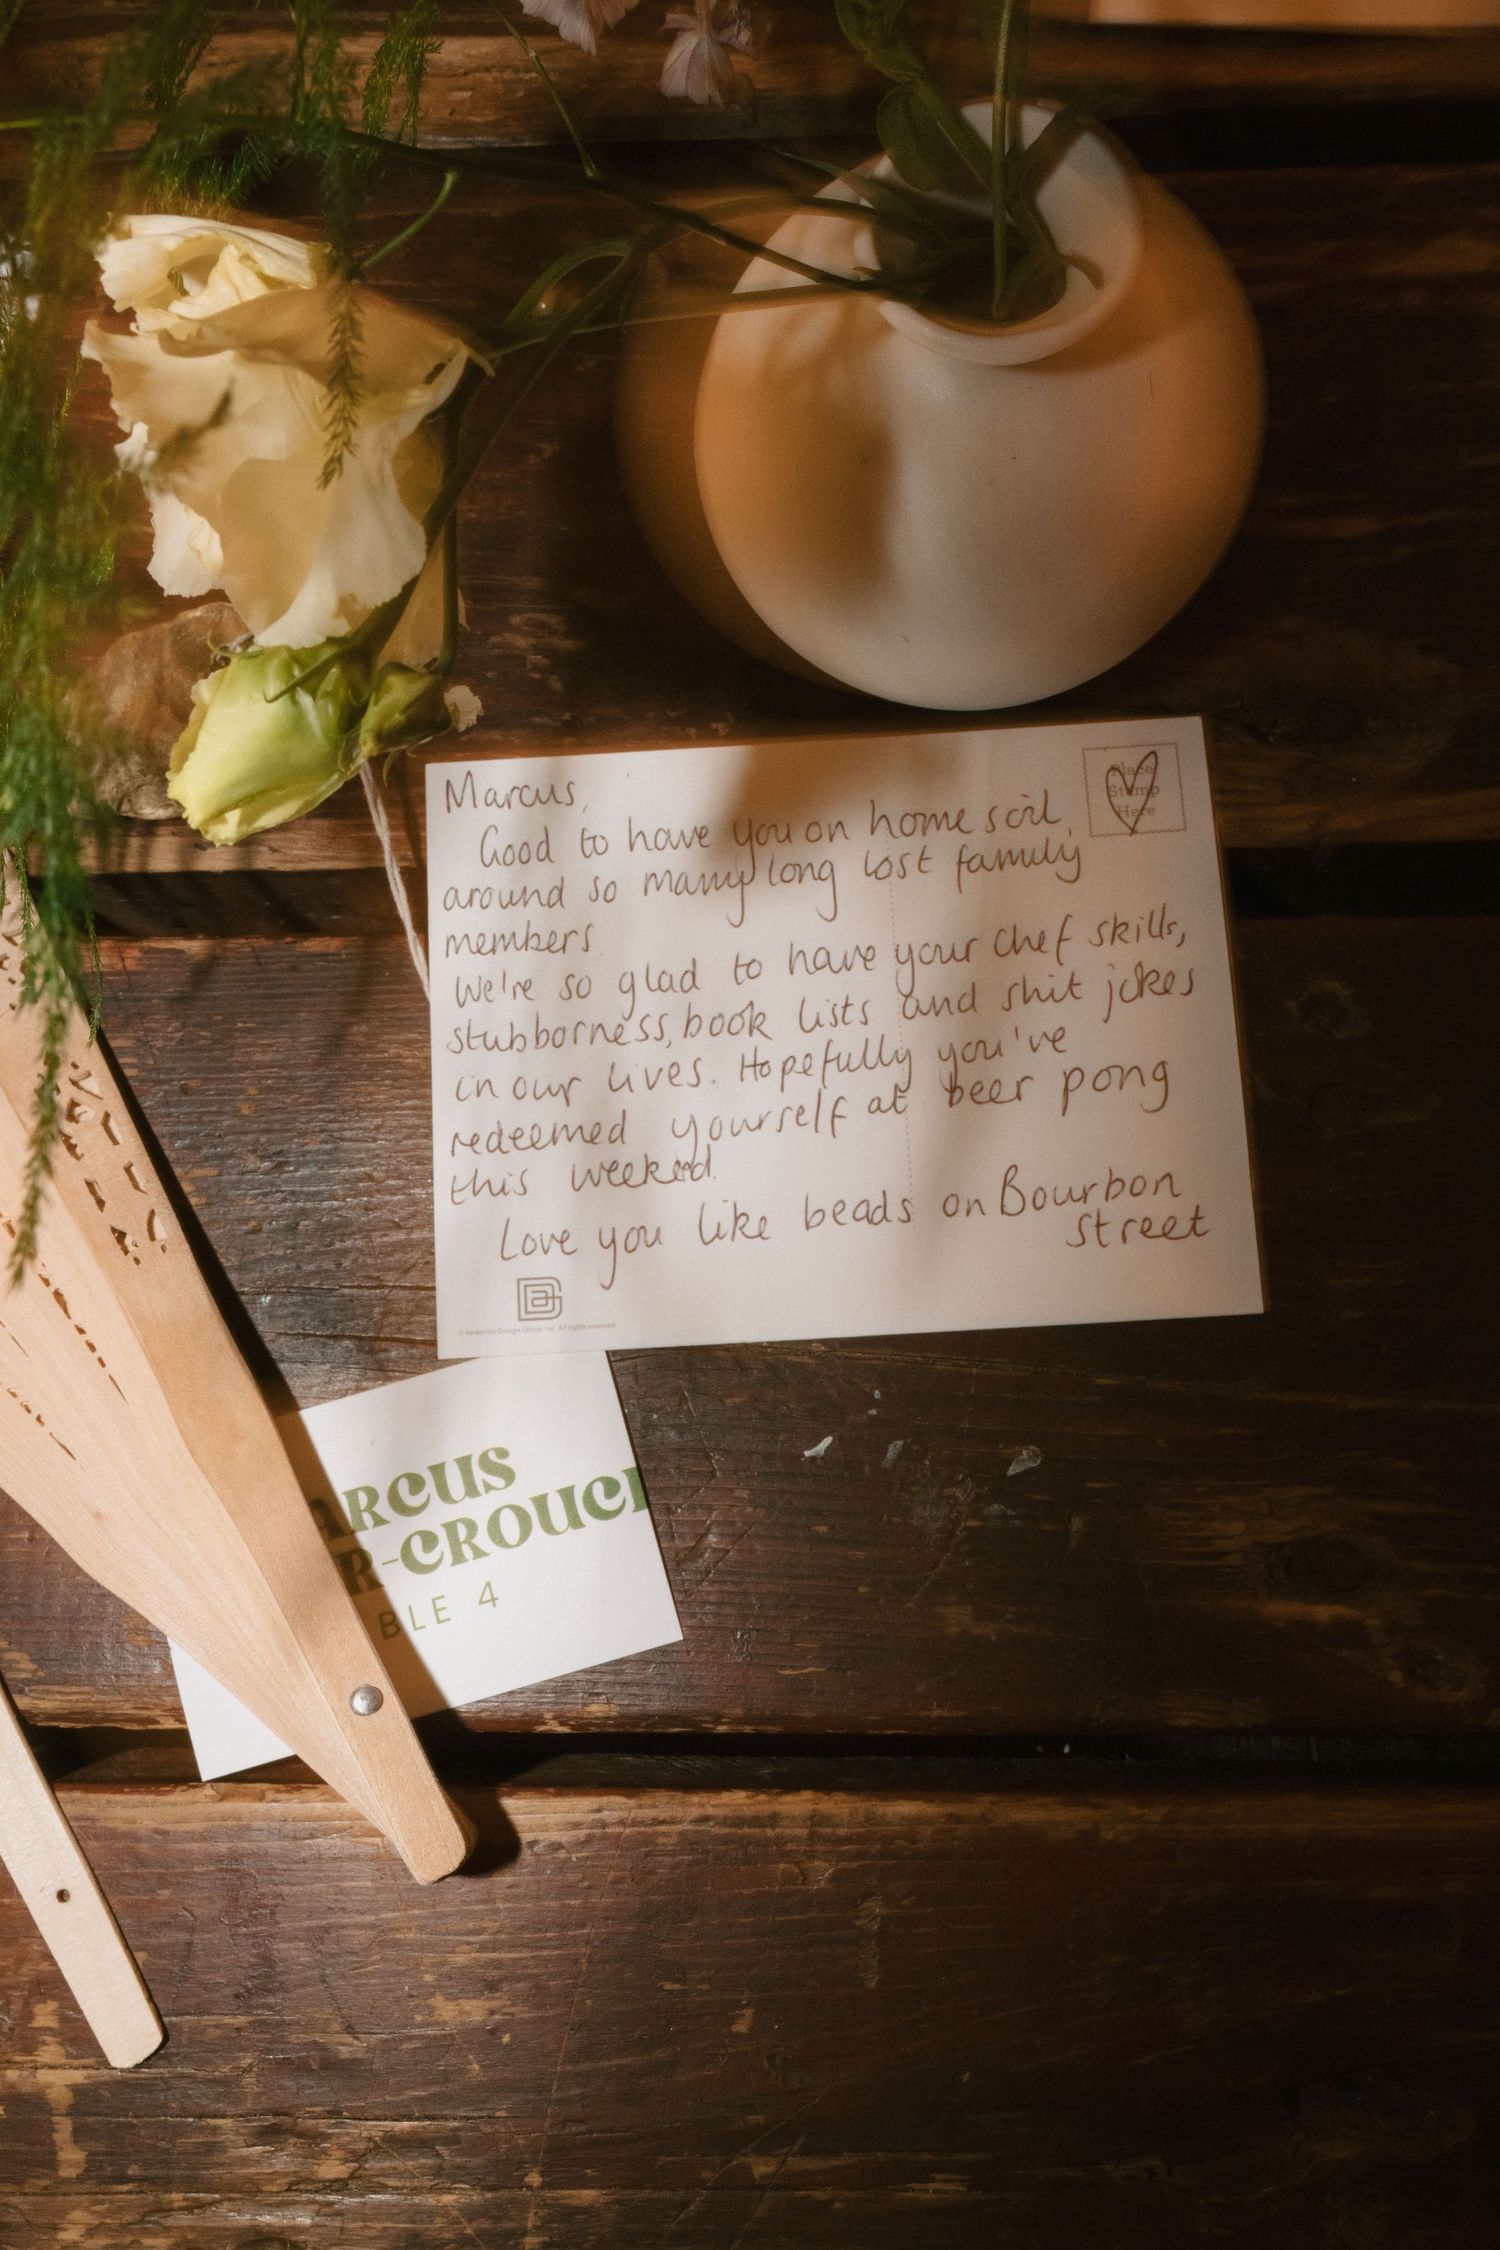 Marcus,
Place
Stamp
Here
Good to have you on home soil,
around so many long lost family
members.
We're so glad to have your chef skills,
stubborness, book lists and shit jokes
in our lives. Hopefully you've
redeemed yourself at beer pong
this weekend.
Love you like beads on Bourbon
Street
© Anderson Design Group, Inc. All rights reserved.
ARCUS
R-CROUCH
BLE 4